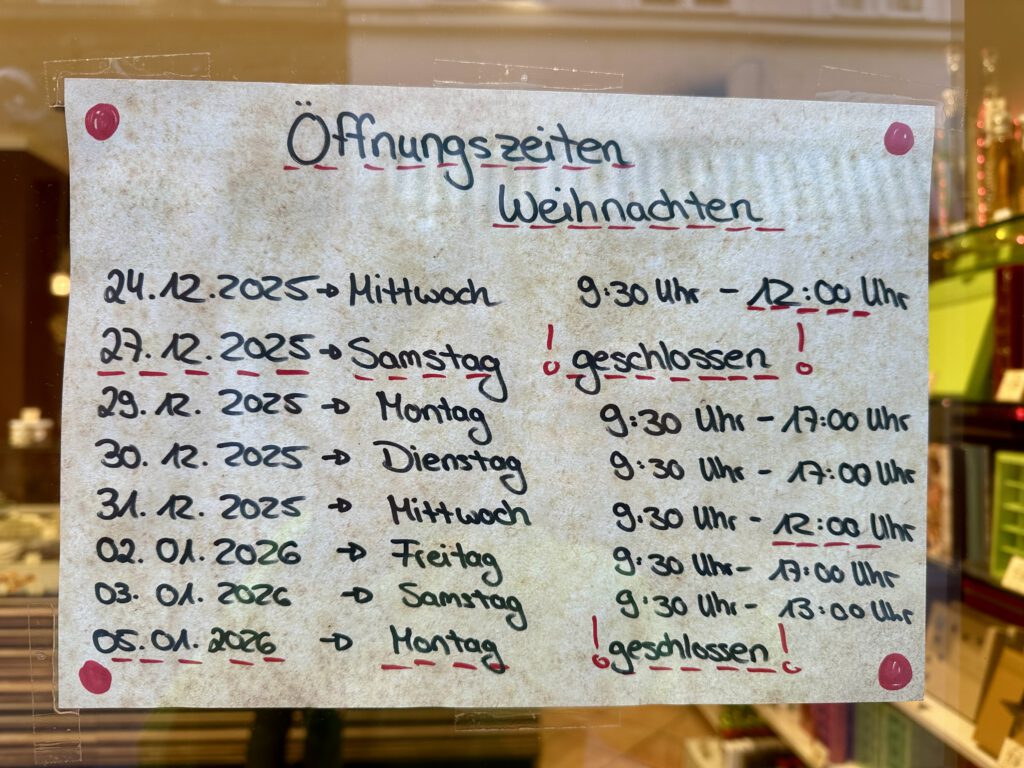 Öffnungszeiten
Weihnachten
24.12.2025 → Mittwoch 9:30 Uhr - 12:00 Uhr
27.12.2025 → Samstag ! geschlossen !
29.12.2025 → Montag 9:30 Uhr - 17:00 Uhr
30.12.2025 → Dienstag 9:30 Uhr - 17:00 Uhr
31.12.2025 → Mittwoch 9.30 Uhr - 12:00 Uhr
02.01.2026 → Freitag 9:30 Uhr - 17:00 Uhr
03.01.2026 → Samstag 9:30 Uhr - 13:00 Uhr
05.01.2026 → Montag ! geschlossen !